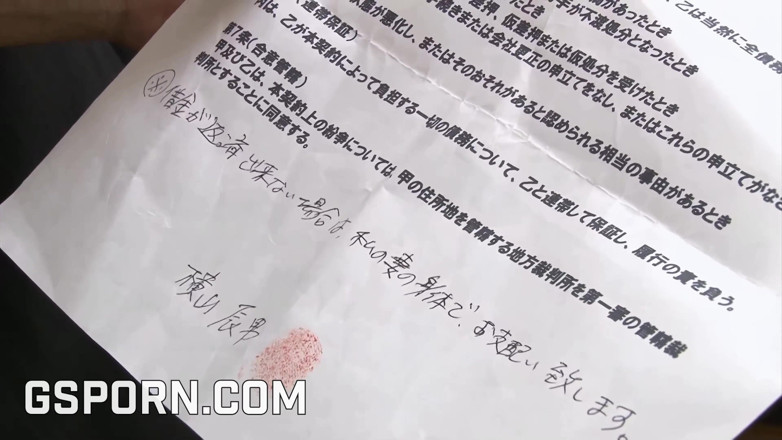 、乙は当然に全債務
があったとき
手が不渡処分となったとき
差押、仮差押または仮処分を受けたとき
手続きまたは会社更正の申立てをなし、またはこれらの申立てがなさ
状態が悪化し、またはそのおそれがあると認められる相当の事由があるとき
(連帯保証)
丙は、乙が本契約によって負担する一切の債務について、乙と連帯して保証し、履行の責を負う。
第7条(合意管轄)
甲及び乙は、本契約上の紛争については甲の住所地を管轄する地方裁判所を第一審の管轄裁
判所とすることに同意する。
※借金が返済出来ない場合は、私の妻の身体で、お支配い致します。
横山辰男
GSPORN.COM